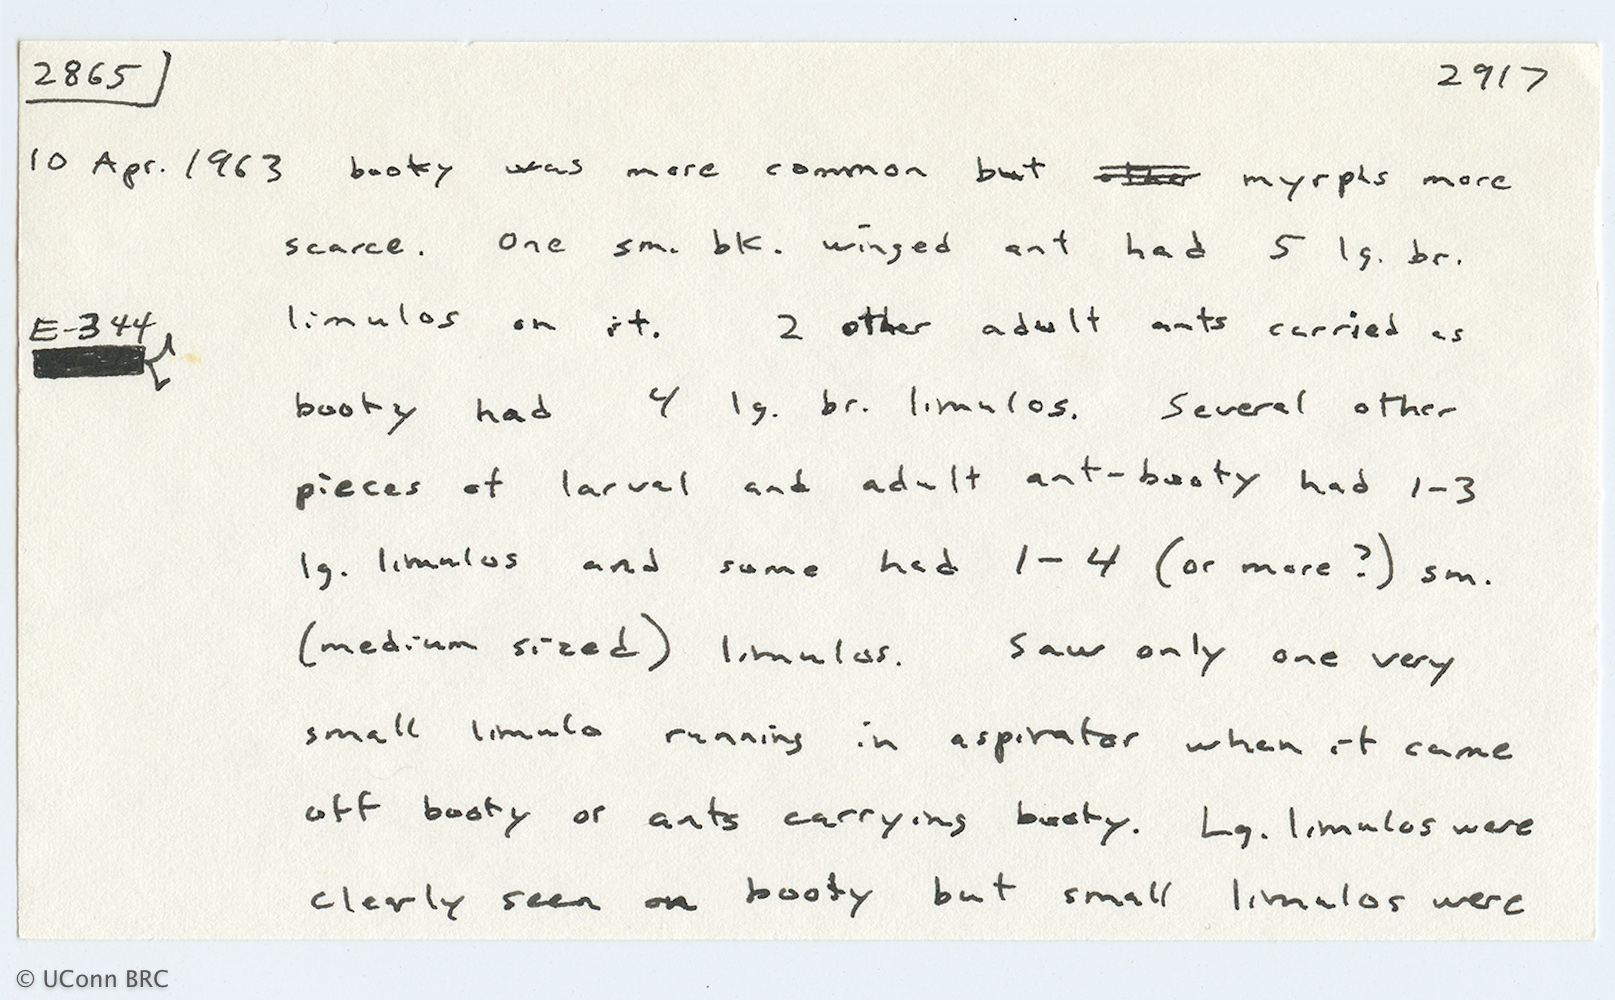 2865 2917
10 Apr. 1963 booty was more common but other myrphs more
scarce. One sm. bk. winged ant had 5 lg. br.
E-344 limulos on it. 2 other adult ants carried as
booty had 4 lg. br. limulos. Several other
pieces of larval and adult ant-booty had 1-3
lg. limulos and some had 1-4 (or more?) sm.
(medium sized) limulos. Saw only one very
small limulo running in aspirator when it came
off booty or ants carrying booty. Lg. limulos were
clearly seen on booty but small limulos were
© UConn BRC